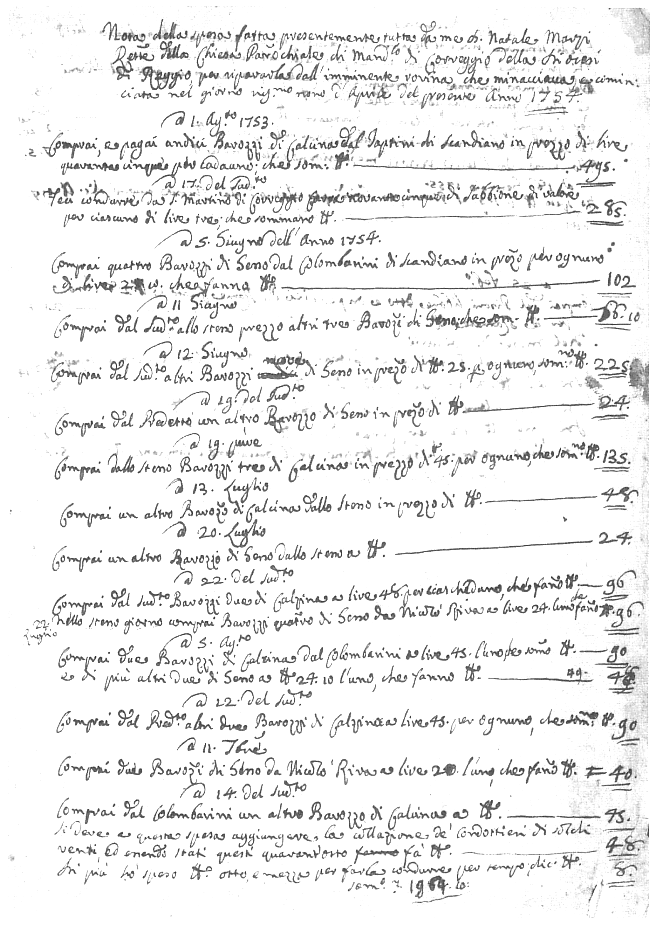 Nota della spesa fatta presentemente tutta da me D. Natale Marzi
Rett.e della Chiesa Parochiale di Mand.lo di Correggio della Diocesi
di Reggio, per ripararla dall'imminente rovina, che minacciava e comin
ciata nel giorno nono d'Aprile del presente Anno 1754.
a 1. Ag.to 1753.
Comprai, e pagai undici Barozzi di Calcina dal di Scandiano in prezzo di lire
quaranta cinque per cadauno; che som. ₶. 495.
a 17. del Sud.to
Feci condurre da S. Martino di Correggio novanta cinque di Sabbione di valore
per ciascuno di lire tre; che sommano ₶. 285.
a 5. Giugno dell'Anno 1754.
Comprai quattro Barozzi di Geso dal Colombarini di Scandiano in prezo per ognuno
di lire che fanno ₶. 102
a 11 Giugno
Comprai dal Sud.to allo steso prezzo altri tre Barozi di Geso; che som. ₶. 66.10
a 12. Giugno
nove
Comprai dal Sud.to altri Barozzi di Geso in prezo di ₶. 25. p. ognuno, som.no ₶. 225
a 19. del Sud.to
Comprai dal Predetto un altro Barozzo di Geso in prezo di ₶. 24.
a 19. pure
Comprai dallo steso Barozzi tre di Calcina in prezzo di ₶. 45. per ognuno, che som.no ₶. 135.
a 13. Luglio
Comprai un altro Barozo di Calcina dallo steso in prezzo di ₶. 48.
a 20. Luglio
Comprai un altro Barozzo di Geso dallo steso a ₶. 24.
a 22. del sud.to
Comprai dal sud.to Barozzi due di Calzina a lire 48. per ciascheduno, che fano ₶. 96
22. Luglio
nello steso giorno comprai Barozzi quatro di Geso da Nicolò Riva a lire 24. l'uno fano ₶. 96.
a 5. Ag.to
Comprai due Barozzi di Calzina dal Colombarini a lire 45. l'uno, che som.o ₶. 90
e di più altri due di Geso a ₶ 24. 10 l'uno, che fanno ₶. 49.
a 22. del sud.to
Comprai dal Pred.to altri due Barozzi di Calzina a lire 45. per ognuno, che som.no ₶. 90
a 11. 7bre
Comprai due Barozi di Geso da Nicolò Riva a lire 20. l'uno, che fano ₶. 40.
a 14. del sud.to
Comprai dal Colombarini un altro Barozzo di Calcina a ₶. 45.
Si deve a questa spesa aggiungere, la collazione de' condottieri di soldi
venti ed essendo stati questi quarant'otto fà ₶. 48.
Di più hò speso ₶. otto, e mezza per farla condurre per tempo dic. ₶. 8.
som.o 1964.10.